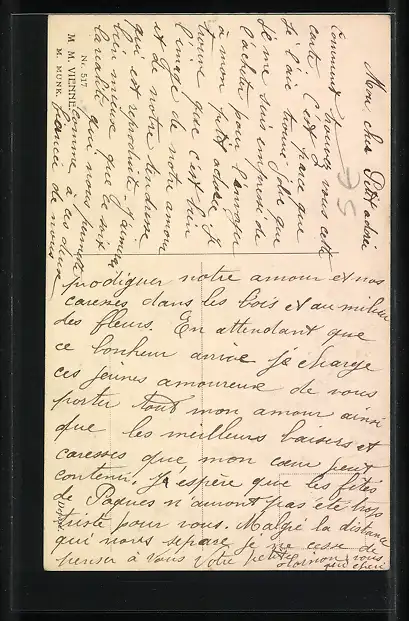 Mon cher Petit adoré
Comment trouvez vous cette
carte c'est parce que
Je l'ai trouvé jolie que
Je me suis empressé de
l'acheter pour l'envoyer
à mon petit adoré. Je
trouve que c'est bien
l'image de notre amour
et de notre tendresse
qui est reproduite J'aimerais
bien mieux que ce soit
la réalité qui nous permette
comme à ces deux
fiancés de nous
Nr. 517.
M. M. VIENNE
M. MUNK.
56
prodiguer notre amour et nos
caresses dans les bois et au milieu
des fleurs. En attendant que
ce bonheur arrive Je charge
ces jeunes amoureux de vous
porter tout mon amour ainsi
que les meilleurs baisers et
caresses que mon cœur peut
contenir. J'éspère que les fêtes
de Paques n'auront pas été trop
triste pour vous. Malgré la distance
qui nous sépare je ne cesse de
penser à vous Votre petite
vous